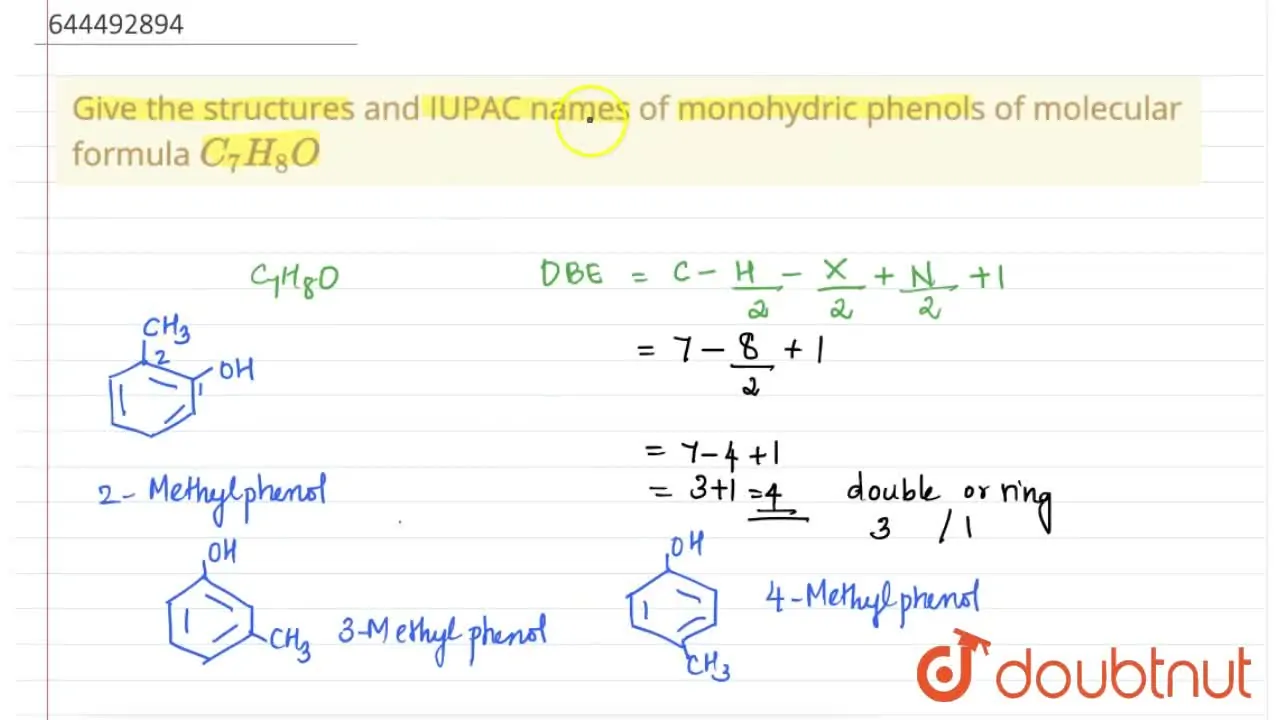 644492894
Give the structures and IUPAC names of monohydric phenols of molecular
formula C₇H₈O
C₇H₈O
DBE = C - H/2 - X/2 + N/2 + 1
= 7 - 8/2 + 1
CH₃
2
OH
1
= 7-4+1
= 3+1 = 4 double or ring
3 / 1
2- Methylphenol
OH
CH₃
3-Methylphenol
OH
CH₃
4-Methylphenol
doubtnut